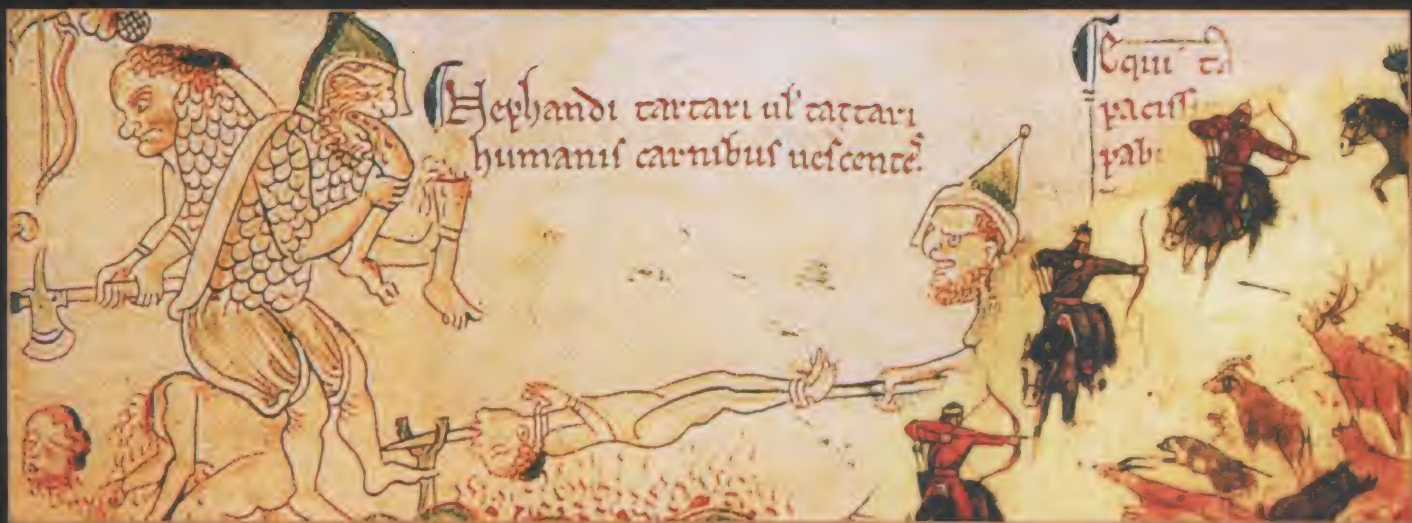 Nephandi tartari ul' tattari
humanis carnibus uescentes.
Equi ta
paciss
pab